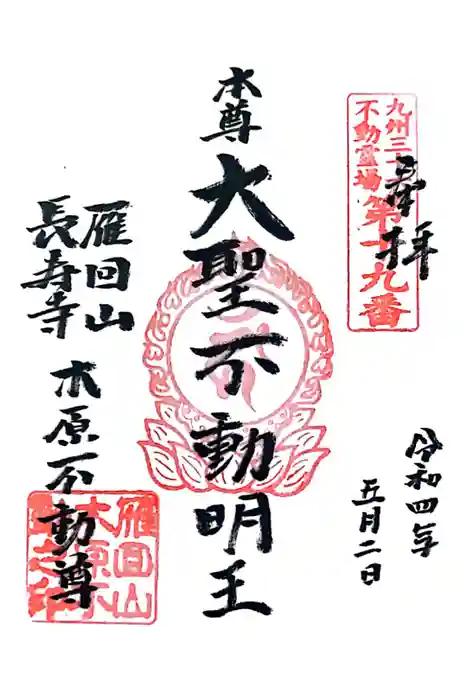 九州三十六
不動霊場第十九番
奉拝
令和四年
五月二日
本尊
大聖不動明王
雁回山
長寿寺
木原不動尊
雁回山
木原不